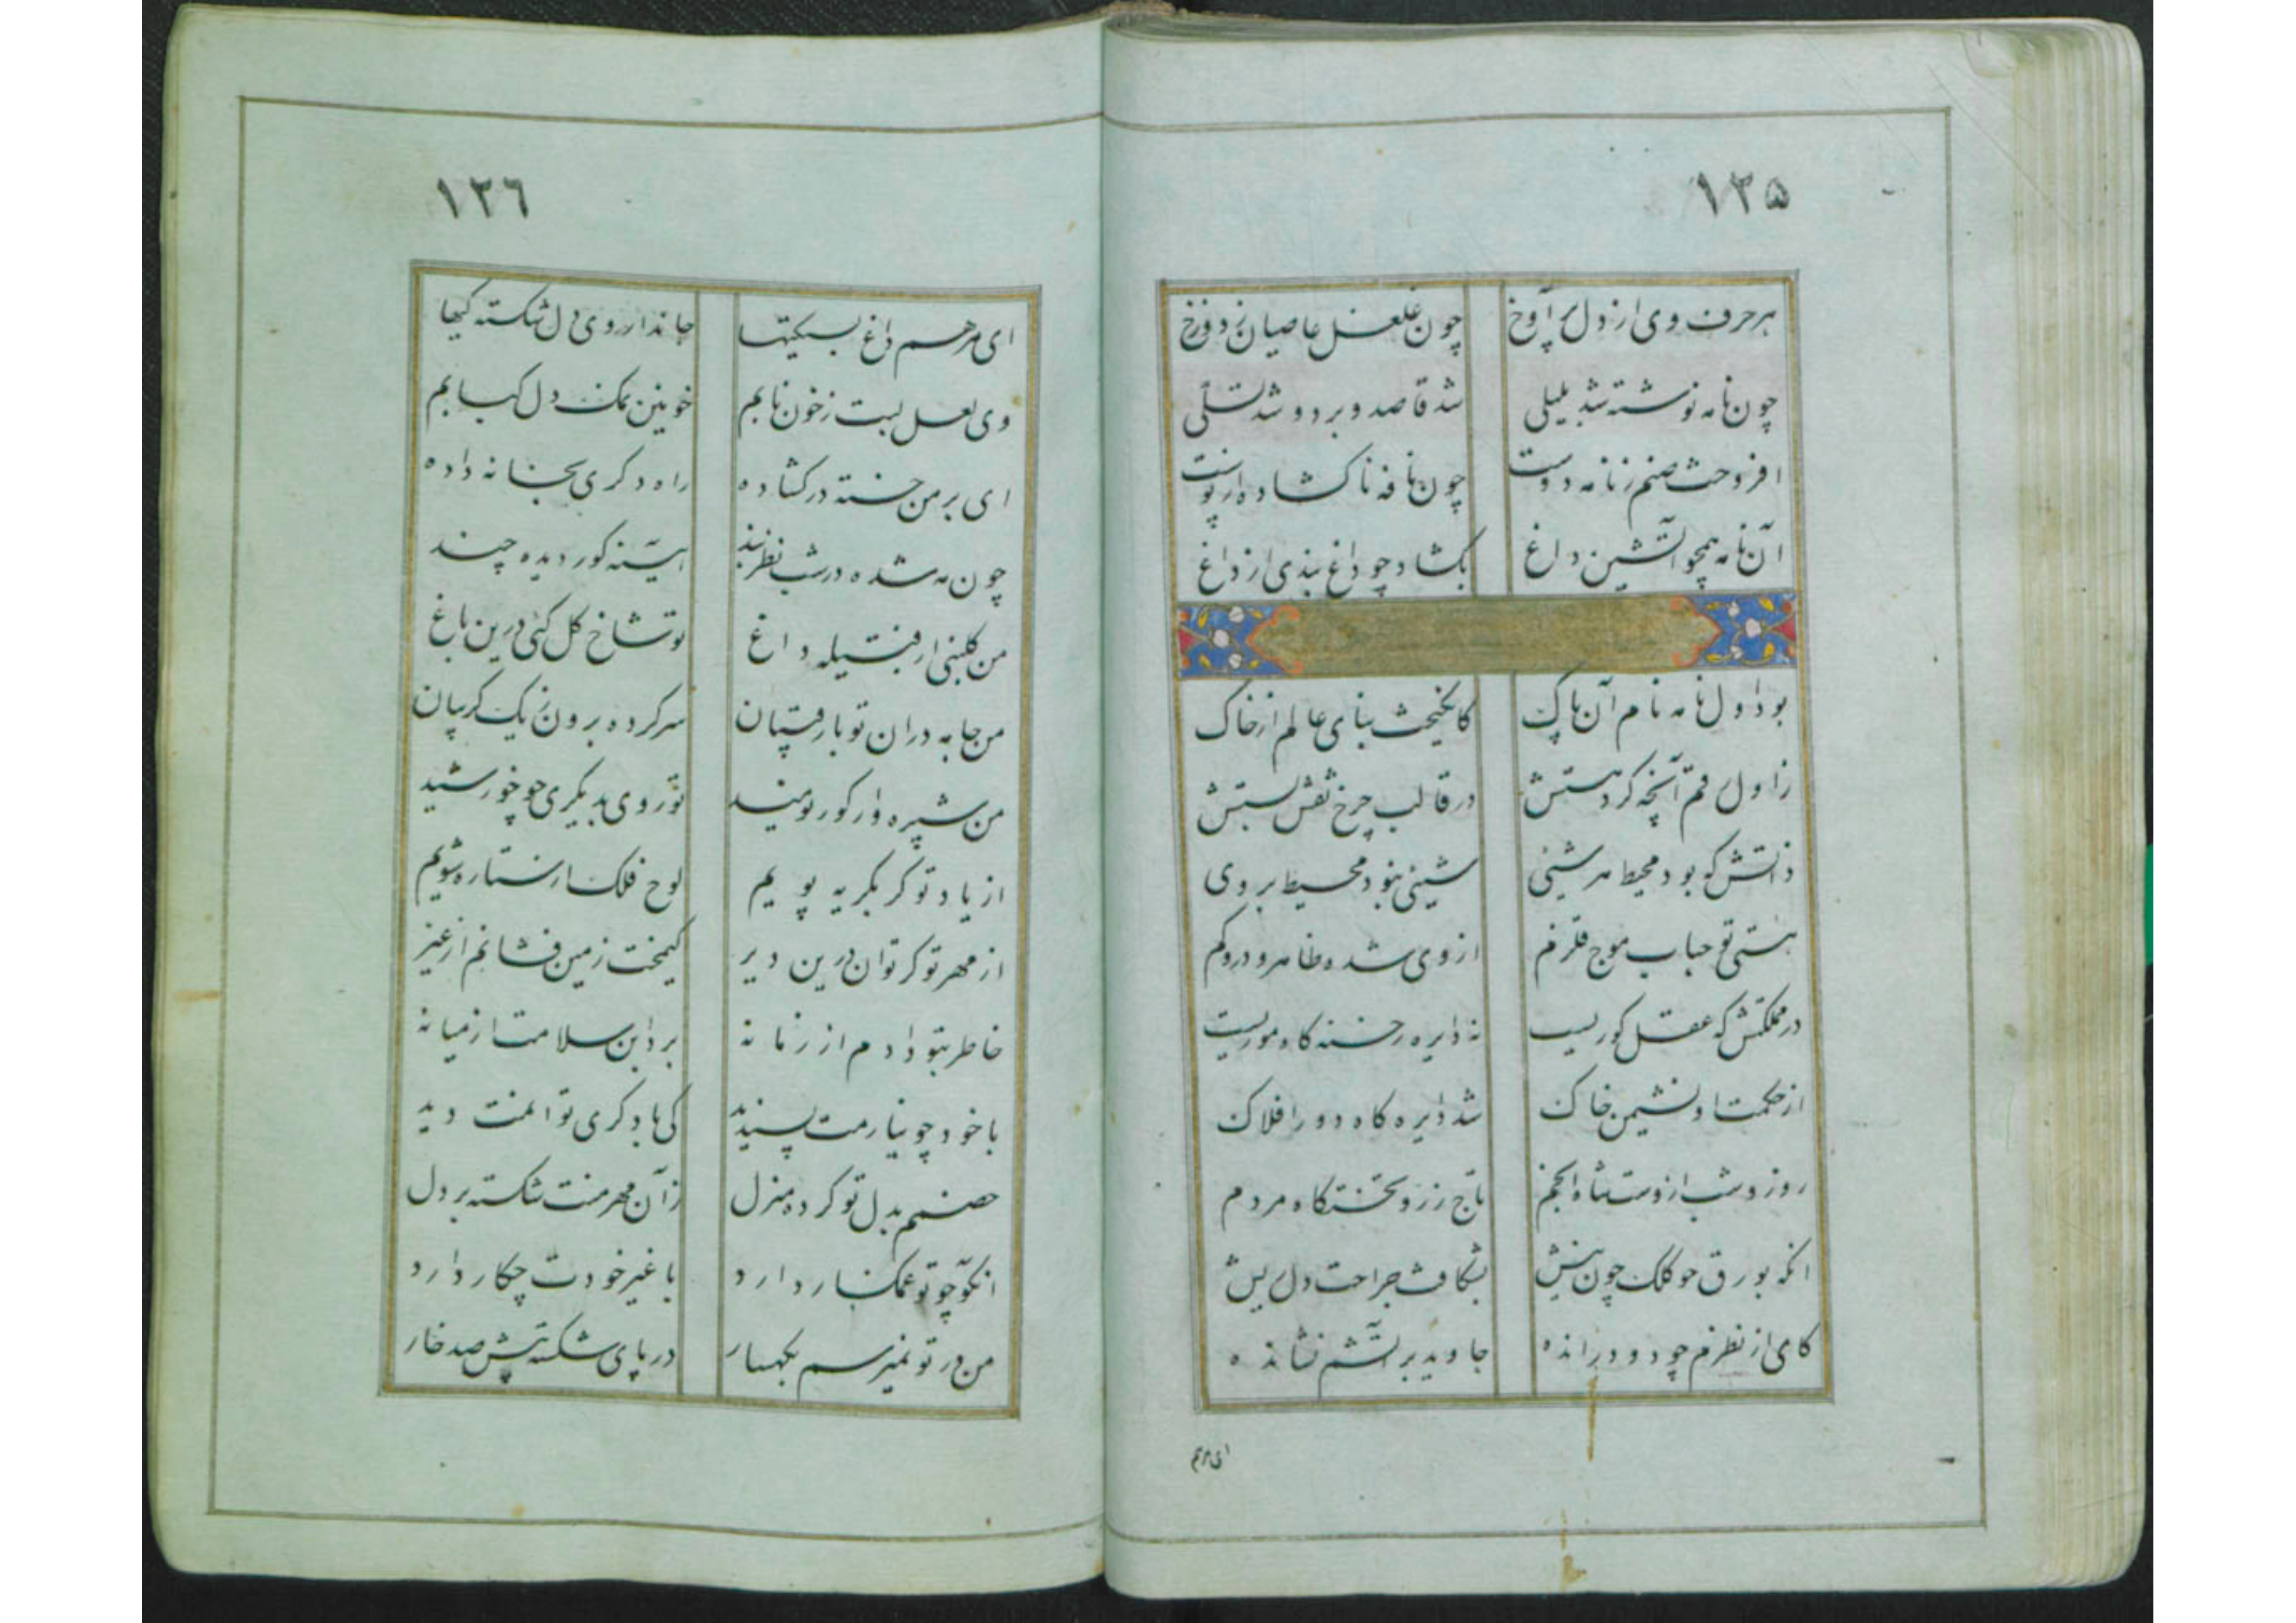 ۱۲۵
هر حرف وی از دل پر آوخ چون غلغل عاصیان ز دوزخ
چون نامه نوشته شد بلیلی شد قاصد و برد و شد تسلی
افروخت صنم ز نامه دوست چون نافه ناکشاده از پوست
آن نامه همچو آتشین داغ بکشاد چو داغ بندی از داغ
بود اول نامه نام آن پاک کانگیخت بنای عالم از خاک
ز اول رقم آنچه کرد هستش در قالب چرخ نقش بستش
ذاتش که بود محیط هر شیئی شیئی نبود محیط بر وی
هستی تو حباب موج قلزم از وی شده ظاهر و درو گم
در مملکتش که عقل کوریست نه دایره رخنه گاه موریست
از حکمت او نشیمن خاک شد دایره گاه دور افلاک
روز و شب ازوست شاه انجم تاج زر و تختگاه مردم
انکه بورق چو کلک چون نیش بشکافت جراحت دل ریش
کای از نظرم چو دود رانده جاوید بر آتشم نشانده
ای مرهم
۱۲۶
ای مرهم داغ بستگیها جاندار روی دل شکستگیها
وی لعل لبت ز خون نابم خونین نمک دل کبابم
ای بر من خسته در کشاده راه دگری بخانه داده
چون مه شده در شب نظربند آیینه کور دیده چند
من گلبنی از فتیله داغ تو شاخ گل کنی درین باغ
من جامه دران تو با رقیبان سر کرده برون ز یک گریبان
من شپره وار کور نومید تو روی بدیگری چو خورشید
از یاد تو گر بگریه پویم لوح فلک از ستاره شویم
از مهر تو گر توان درین دیر گیمخت زمین فشانم از غیر
خاطر بتو دادم از زمانه برد این سلامت از میانه
با خود چو نیارمت پسندید کی با دگری توانمت دید
خصمم بدل تو کرده منزل زان مهر منت شکسته بر دل
انکو چو تو غمگسار دارد با غیر خودت چکار دارد
من در تو نمیرسم بکهسار در پای شکسته پیش صد خار